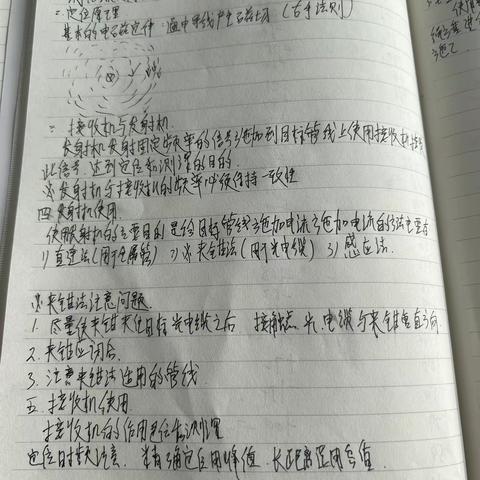 二 定位原理
基本的电磁定律:通电导线产生磁场(右手法则)
三 接收机与发射机
发射机发射固定频率的信号施加到目标管线上使用接收机接收
此信号,达到定位和测深的目的.
※发射机与接收机的频率必须保持一致性
四 发射机使用
使用发射机的主要目的是给目标管线施加电流,施加电流的方法主要有
1) 直连法(用于金属管) 2) ※夹钳法(用于光电缆) 3) 感应法.
※夹钳法注意问题.
1. 尽量使夹钳夹住目标光电缆之后 接触点 光、电缆与夹钳垂直方向
2. 夹钳应闭合.
3. 注意夹钳法适用的管线
五 接收机使用
接收机的作用定位和测深
定位时 注意 定位用峰值 长距离应用谷值